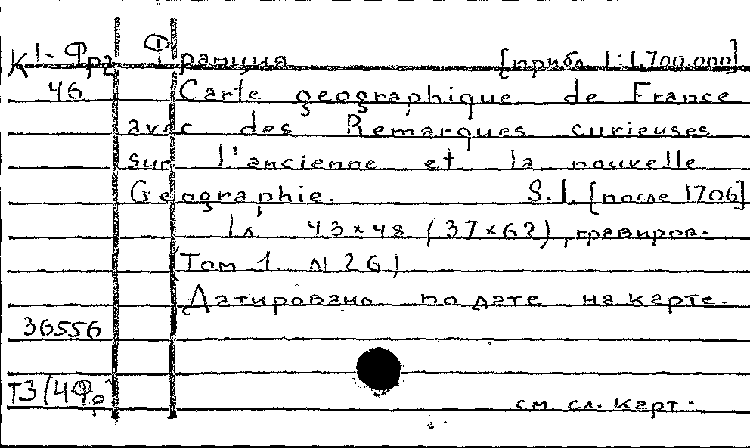 К 1-Фра Франция [прибл. 1:1.700.000]
46 Carte geographique de France
avec des Remarques curieuses
sur l'ancienne et la nouvelle
Geographie. S.l. [после 1706]
1 л. 43×48 (37×62), гравиров.
Том 1. N 26)
Датировано по дате на карте.
36556
Т3/4Фр
см. сл. карт.